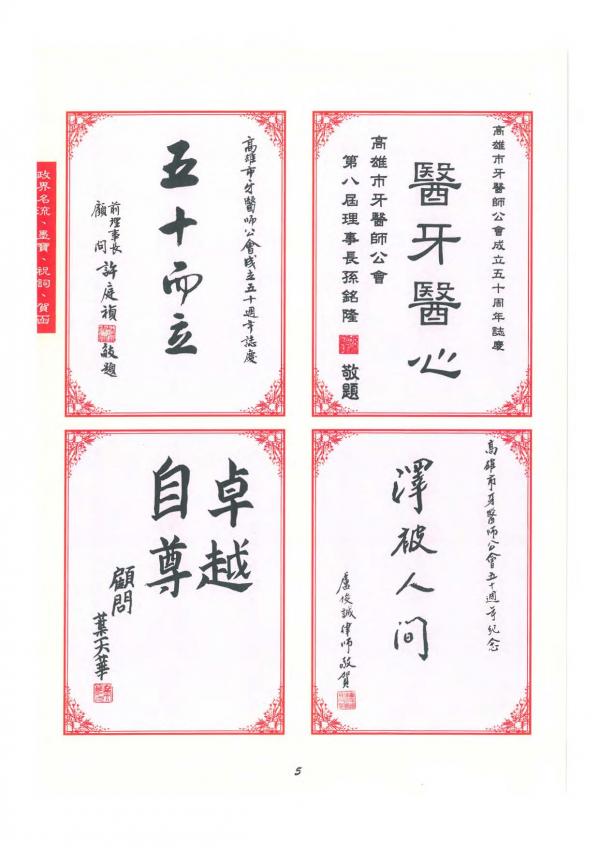 政界名流、墨寶、祝詞、賀函
高雄市牙醫師公會成立五十周年誌慶
醫牙醫心
高雄市牙醫師公會
第八屆理事長孫銘隆
敬題
高雄市牙醫師公會成立五十週年誌慶
五十而立
前理事長
顧問
許庭禎
敬題
高雄市牙醫師公會五十週年紀念
澤被人间
盧俊誠律師敬賀
卓越
自尊
顧問
葉天華
5